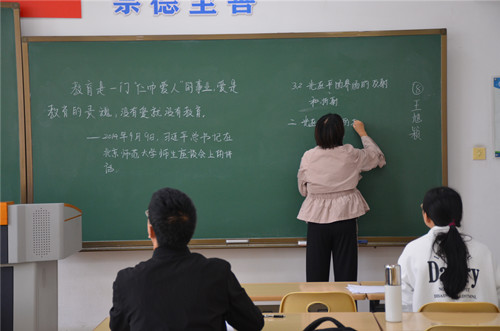 崇德至善
教育是一门"仁而爱人"的事业,爱是
教育的灵魂,没有爱就没有教育。
——2014年9月9日,习近平总书记在
北京师范大学师生座谈会上的讲
话
3.2
二、
⑧
王
颖
Daisy